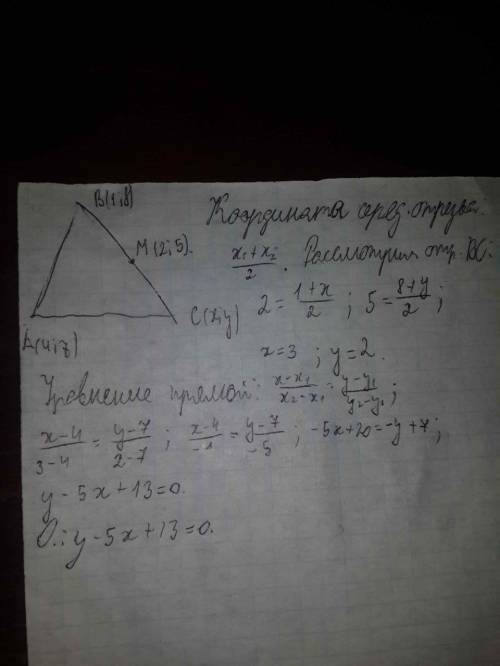 B(1;8)
M(2;5).
C(x;y)
A(4;7)
Координата серед. отрезка.
\frac{x₁+x₂}{2}. Рассмотрим отр. BC.
2=\frac{1+x}{2}; 5=\frac{8+y}{2};
x=3; y=2.
Уравнение прямой: \frac{x-x₁}{x₂-x₁}=\frac{y-y₁}{y₂-y₁};
\frac{x-4}{3-4}=\frac{y-7}{2-7}; \frac{x-4}{-1}=\frac{y-7}{-5}; -5x+20=-y+7;
y-5x+13=0.
О.: y-5x+13=0.